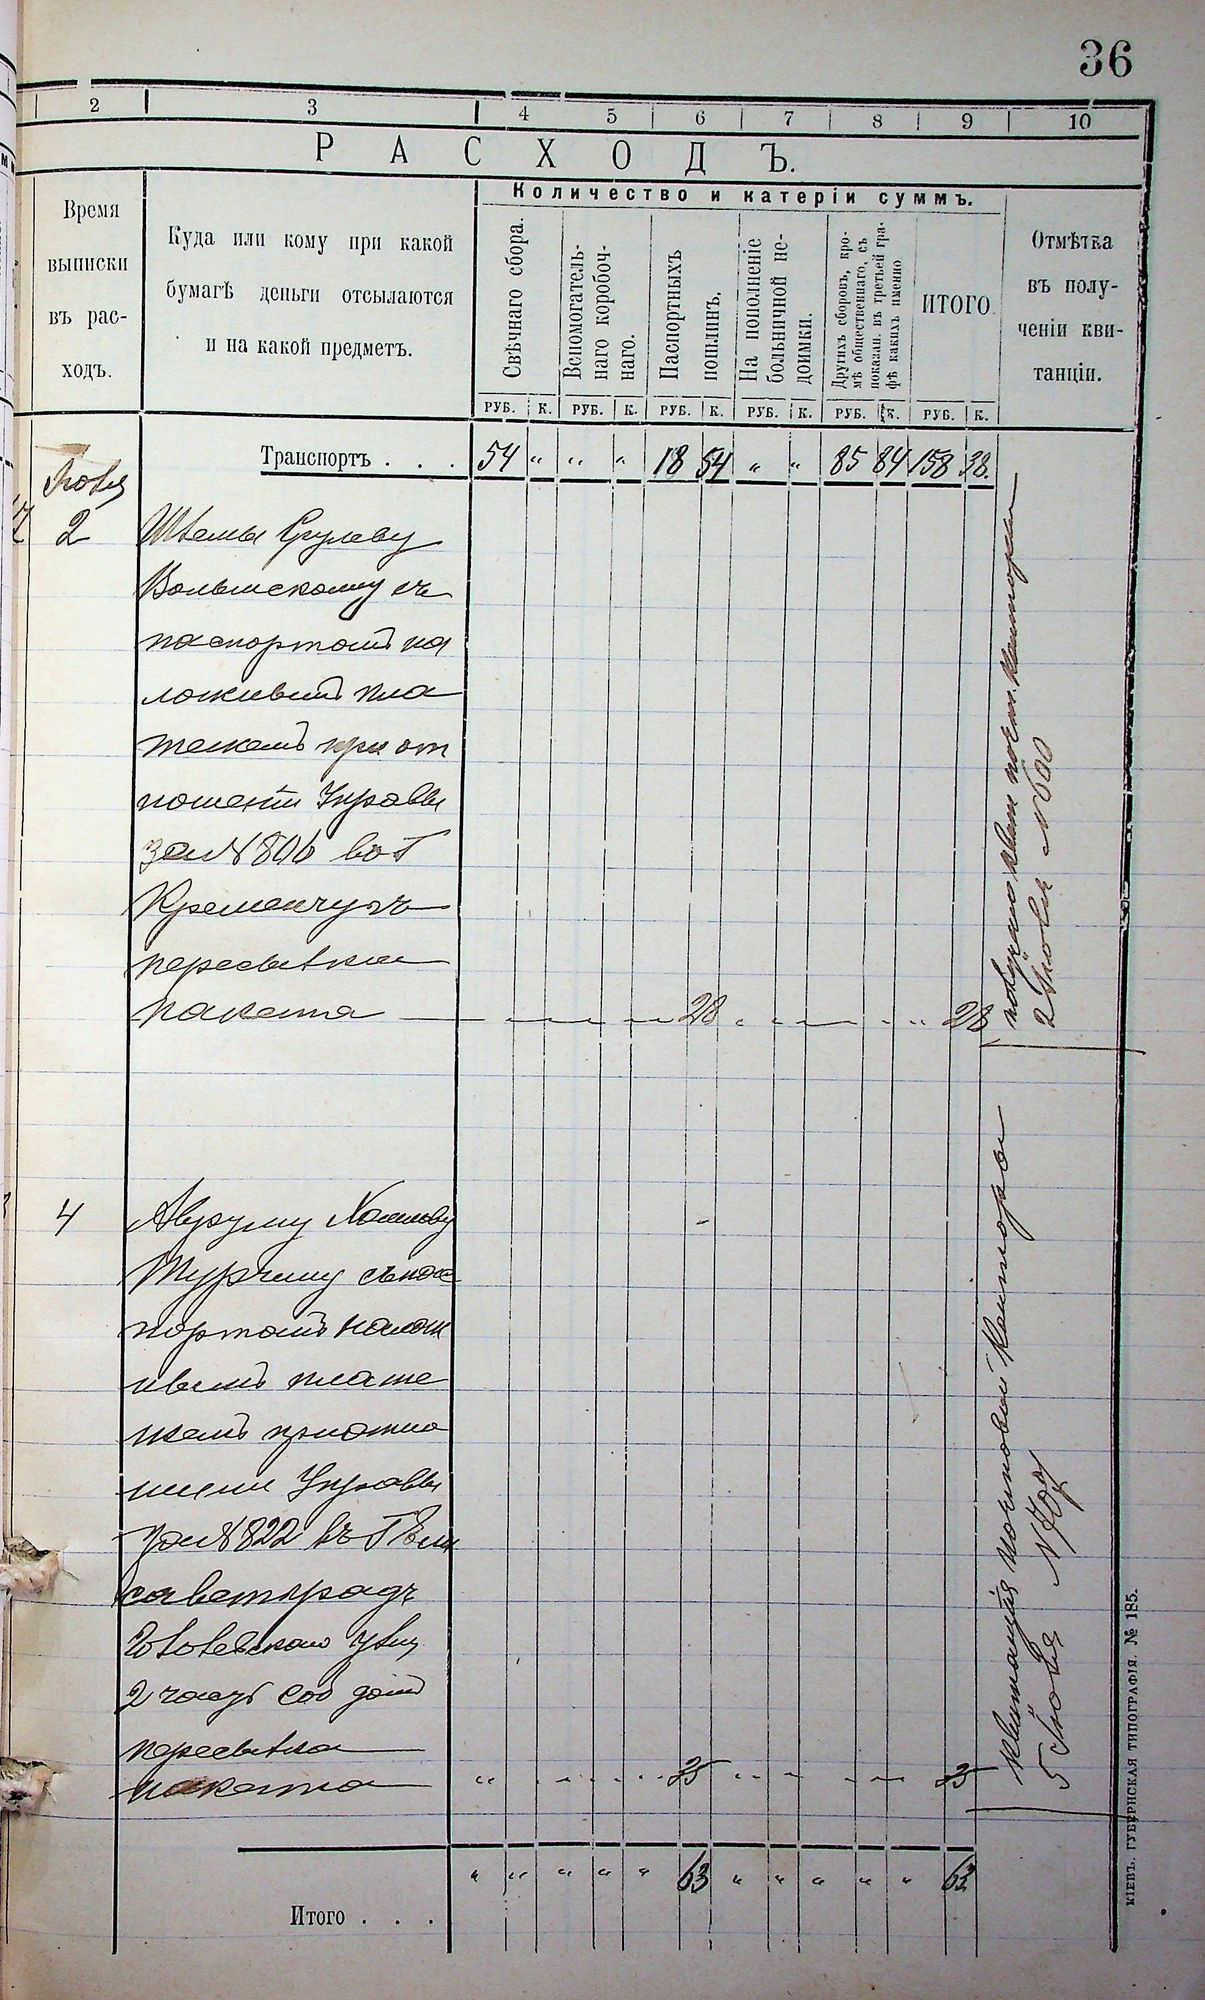 36
2 3 4 5 6 7 8 9 10
РАСХОДЪ.
Время
выписки
въ рас-
ходъ.
Куда или кому при какой
бумагѣ деньги отсылаются
и на какой предметъ.
Количество и катеріи суммъ.
Свѣчнаго сбора.
Вспомогатель-
наго коробоч-
наго.
Паспортныхъ
пошлинъ.
На пополненіе
больничной не-
доимки.
Другихъ сборовъ, кро-
мѣ общественнаго, съ
показан. въ третьей гра-
фѣ какихъ именно
ИТОГО.
Отмѣтка
въ полу-
ченіи кви-
танціи.
РУБ. К. РУБ. К. РУБ. К. РУБ. К. РУБ. К. РУБ. К.
Транспортъ . . . 54 „ „ „ 18 54 „ „ 85 84 158 38.
Іюля
2
Срулеву
съ
паспортомъ на
ложнымъ пла
тежемъ при от
ношеніи Управы
за № 806 въ Г
Кременчугъ
пересылка
пакета 28 28
почт. конторы
2 Іюля № 600
4
Авруму
съ пас
портомъ налож
нымъ плате
жемъ при отно
шеніи Управы
за № 822 въ Г Ели
саветградъ
2 часть соб домъ
пересылка
пакета „ 35 35
Квитанція почтовой Конторы
5 Іюля
„ „ „ „ „ 63 „ „ „ „ „ 63
Итого . . .
КІЕВЪ. ГУБЕРНСКАЯ ТИПОГРАФІЯ. № 185.